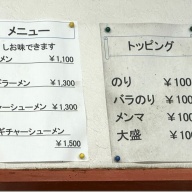 メニュー
しお味できます
メン ¥1,100
ラーメン ¥1,300
チャーシューメン ¥1,300
ギチャーシューメン ¥1,500
トッピング
のり ¥100
バラのり ¥100
メンマ ¥100
大盛 ¥100